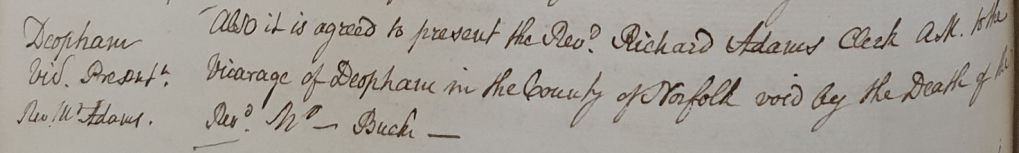 Deopham
Vid. Presentn.
Revd. Mr. Adams.
Also it is agreed to present the Revd. Richard Adams Clerk A.M. to the
Vicarage of Deopham in the County of Norfolk void by the Death of the
Revd. Mr — Buck —